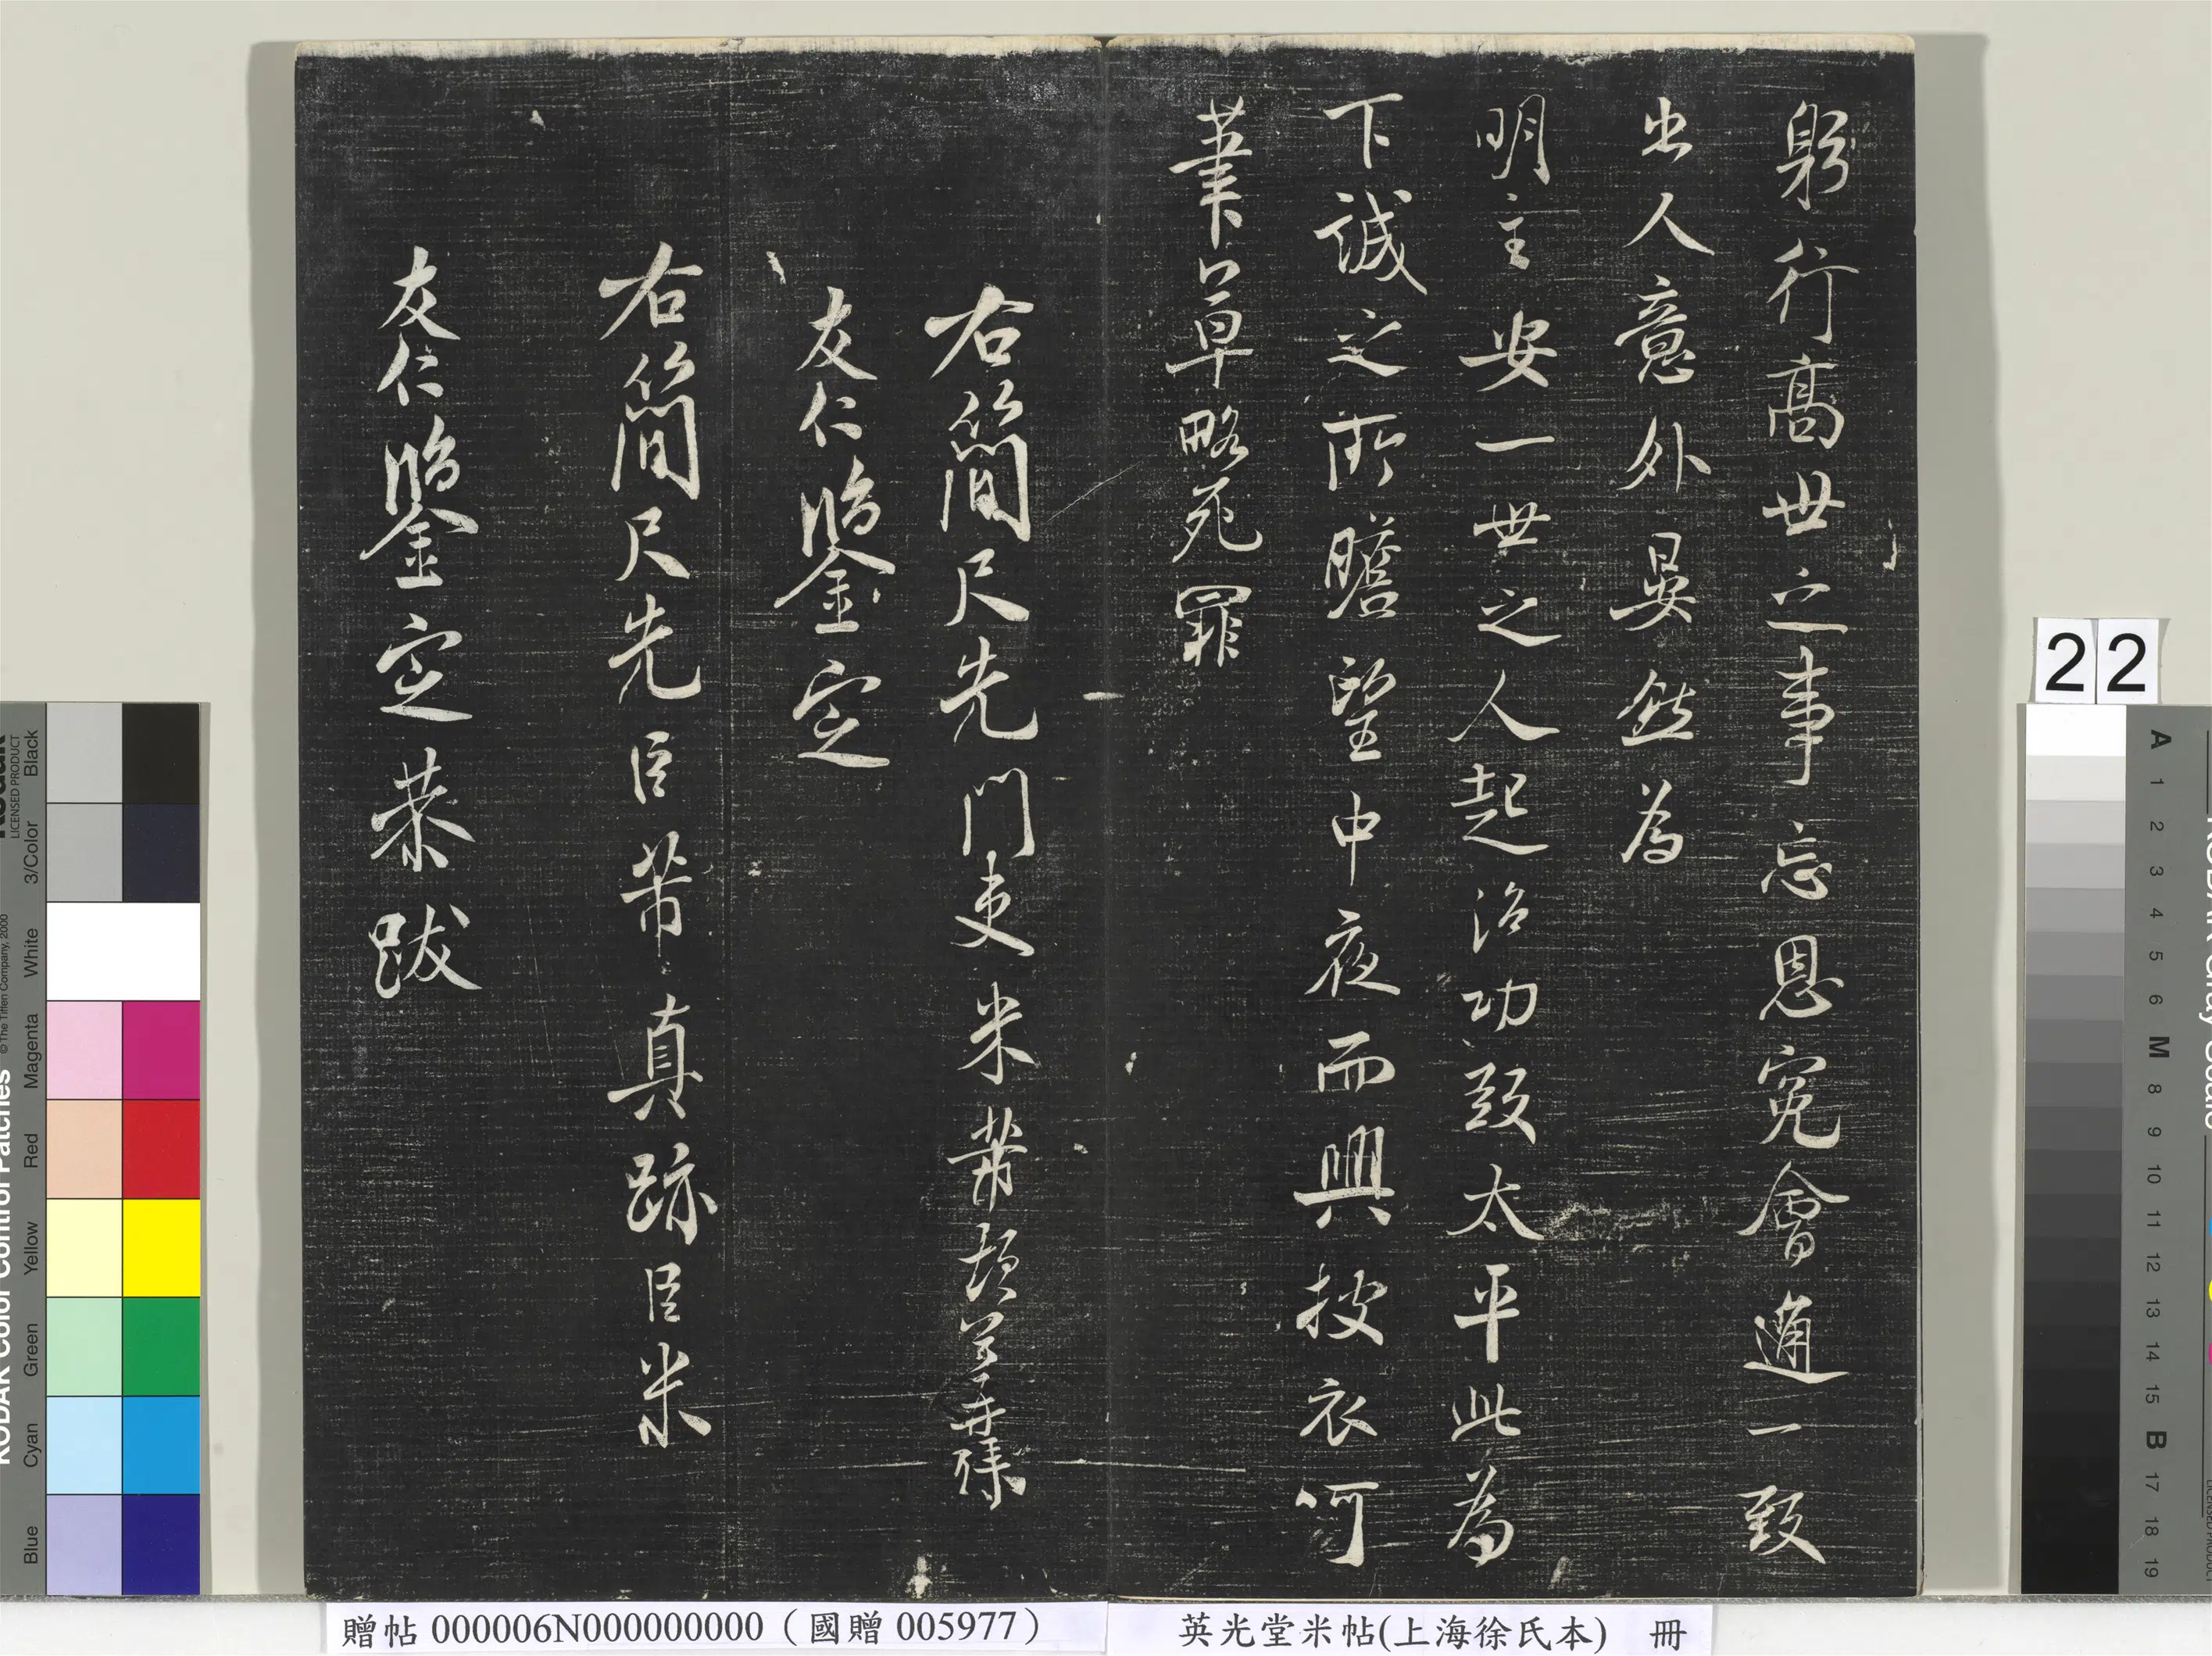 躬行高世之事忘恩冤會通一致
出人意外晏然為
明主安一世之人起治功致太平此為
下誠之所瞻望中夜而興披衣呵
筆草略死罪
右簡尺先門吏米芾
友仁鑒定
右簡尺先臣芾真跡臣米
友仁鑒定恭跋
22
KODAK Color Control Patches
© The Tiffen Company, 2000
LICENSED PRODUCT
Blue
Cyan
Green
Yellow
Red
Magenta
White
3/Color
Black
A 1 2 3 4 5 6 M 8 9 10 11 12 13 14 15 B 17 18 19
贈帖 000006N000000000（國贈 005977）
英光堂米帖(上海徐氏本) 冊